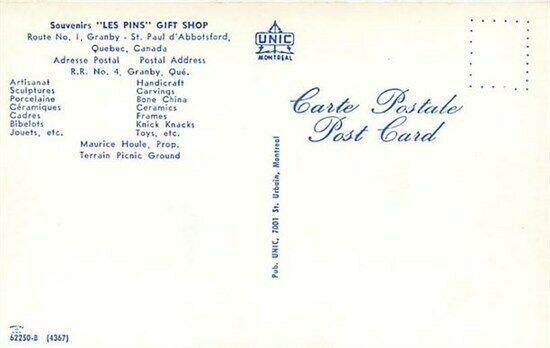 Souvenirs "LES PINS" GIFT SHOP
Route No. 1, Granby - St. Paul d'Abbotsford,
Quebec, Canada
Adresse Postal Postal Address
R.R. No. 4, Granby, Qué.
Artisanat Handicraft
Sculptures Carvings
Porcelaine Bone China
Céramiques Ceramics
Cadres Frames
Bibelots Knick Knacks
Jouets, etc. Toys, etc.
Maurice Houle, Prop.
Terrain Picnic Ground
UNIC
MONTREAL
Carte Postale
Post Card
Pub. UNIC, 7001 St. Urbain, Montreal
62250-B (4367)